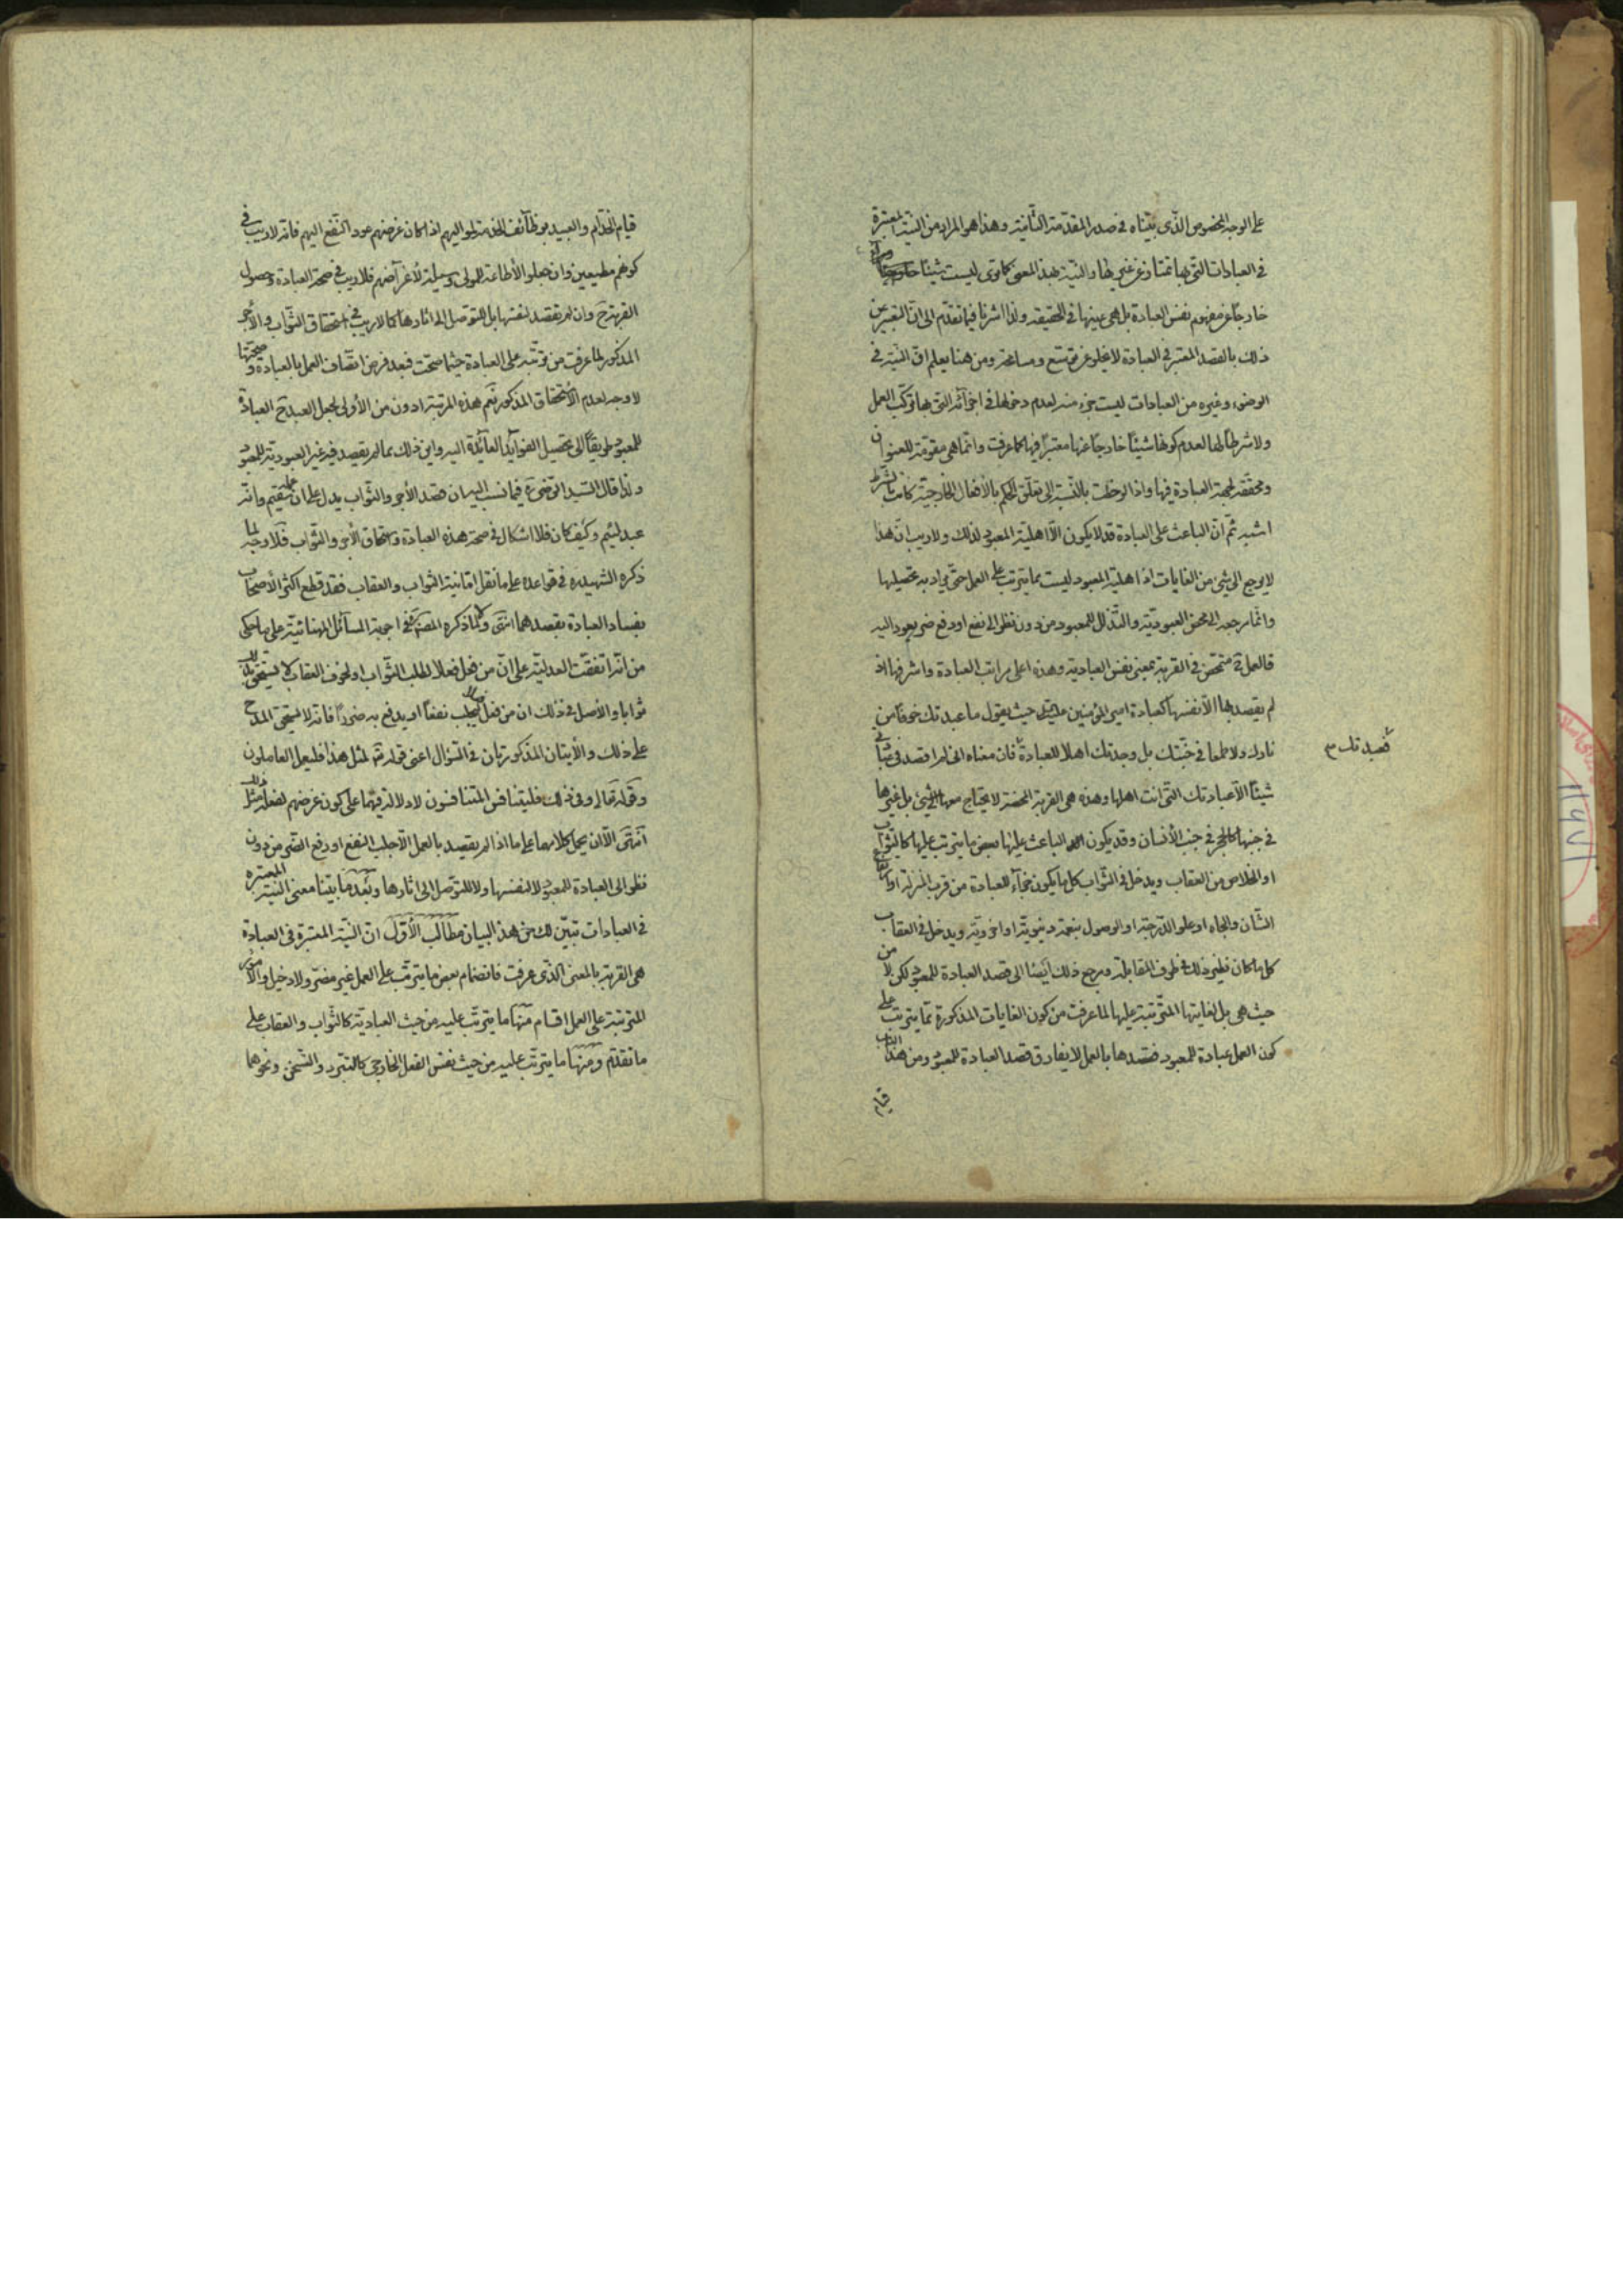 على الوجه المخصوص الذى بيّناه فى صدر المقدمة الثانية وهذا هو المراد من النية المعتبرة
فى العبادات التى بها تمتاز عن غيرها والنية بهذا المعنى كما ترى ليست شيئا
خارجًا عن مفهوم نفس العبادة بل هى عينها فى الحقيقة ولذا اشرنا فيما تقدم الى ان التعبير عن
ذلك بالقصد المعتبر فى العبادة لا يخلو عن توسّع ومسامحة ومن هنا يعلم انّ النية فى
الوضوء وغيره من العبادات ليست جزء منه لعدم دخولها فى اجزائه التى بها تركّب العمل
ولا شرطًا لها لعدم كونها شيئًا خارجًا عنها معتبرًا فيها كما عرفت وانما هى مقوّمة للعنوان
ومحققة لجهة العبادة فيها واذا لوحظت بالنسبة الى تعلّق الحكم بالأفعال الخارجية كانت بالشرط
اشبه ثم انّ الباعث على العبادة قد لا يكون الّا اهلية المعبود لذلك ولا ريب ان هذا
لا يرجع الى شئ من الغايات اذ اهلية المعبود ليست مما يترتب على العمل حتى يراد به تحصيلها
وانّما مرجعه الى محض العبودية والتذلل للمعبود من دون نظر الى نفع او دفع ضر يعود اليه
فالعمل ح متمحّض فى القربة بمعنى نفس العبادية وهذه اعلى مراتب العبادة واشرفها اذ
لم يقصد بها الّا نفسها كعبادة امير المؤمنين حيث يقول ما عبدتك خوفا من
نارك ولا طمعا فى جنّتك بل وجدتك اهلا للعبادة فان معناه انى لم اقصد فى
فعبدتك
شيئًا الّا عبادتك التى انت اهلها وهذه هى القربة المحضة لا يحتاج معها الى شئ بل غيرها
فى جنبها كالحجر فى جنب الأنسان وقد يكون الباعث عليها بعض ما يترتب عليها كالثواب
او الخلاص من العقاب ويدخل فى الثّواب كل ما يكون جزآء للعبادة من قرب المنزلة او ارتفاع
الشأن والجاه او علو الدّرجة او الوصول بنعمة دنيوية او اخروية ويدخل فى العقاب
كل ما كان نظير ذلك فى طرف المقابلة ومرجع ذلك ايضا الى قصد العبادة للمعبود لكن لا من
حيث هى بل لغايتها المترتبة عليها لما عرفت من كون الغايات المذكورة مما يترتب على
كون العمل عبادة للمعبود فقصدها بالعمل لا يفارق قصد العبادة للمعبود ومن هذا الباب
قيام
قيام الخدّام والعبيد بوظائف الخدمة لمواليهم اذا كان غرضهم عود النفع اليهم فانه لا ريب فى
كونهم مطيعين وان جعلوا الأطاعة للمولى وسيلة لأغراضهم فلا ريب فى صحة العبادة وحصول
القربة ح وان لم يقصد لنفسها بل للتوصل الى اثارها كما لا ريب فى استحقاق الثواب والأجر
المذكور لما عرفت من ترتّبه على العبادة حيثما صحّت فبعد فرض اتصاف العمل بالعبادة وصحتها
لا وجه لعدم الأستحقاق المذكور نعم هذه المرتبة ادون من الأولى لجعل العبد ح العبادة
للمعبود طريقًا الى تحصيل الفوايد العائدة اليه واين ذلك مما لم يقصد فيه غير العبودية للمعبود
ولذا قال السّيد الرّضى ره فيما نسب اليه ان قصد الأجر والثواب يدل على ان وانه
عبد لئيم وكيف كان فلا اشكال فى صحة هذه العبادة واستحقاق الأجر والثواب فلا وجه لما
ذكره الشهيد ره فى قواعده على ما نقل اما نية الثواب والعقاب فقد قطع اكثر الأصحاب
بفساد العبادة بقصدهما انتهى وكذا ما ذكره فى اجوبة المسائل المهنائية على ما حكى
من انه اتفقت العدلية على انّ من فعل فعلا لطلب الثّواب او لخوف العقاب لا يستحق بذلك
ثوابا والأصل فى ذلك ان من فعل فعلا ليجلب نفعًا او يدفع به ضررًا فانه لا يستحق المدح
على ذلك والأيتان المذكورتان فى السّؤال اعنى قوله تعالى لمثل هذا فليعمل العاملون
وقوله تعالى وفى ذلك فليتنافس المتنافسون لا دلالة فيهما على كون غرضهم بفعله مثل ذلك
انتهى الّا ان يحمل كلامهما على ما اذا لم يقصد بالعمل الّا جلب النفع او دفع الضّر من دون
نظر الى العبادة للمعبود لا لنفسها ولا للتوصل الى اثارها وبعد ما بيّنا معنى النية المعتبره
فى العبادات تبيّن لك من هذا البيان مطالب الأوّل انّ النيّة المعتبرة فى العبادة
هى القربة بالمعنى الذى عرفت فانضمام بعض ما يترتب على العمل غير مضرّ ولا دخيل والأمور
المترتبة على العمل اقسام منها ما يترتب عليه من حيث العبادية كالثّواب والعقاب على
ما تقدّم ومنها ما يترتب عليه من حيث نفس الفعل الخارجى كالتبرد والتسخّن ونحوهما